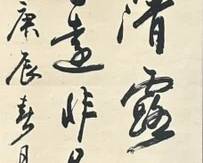 清露
遠非是
庚辰春月